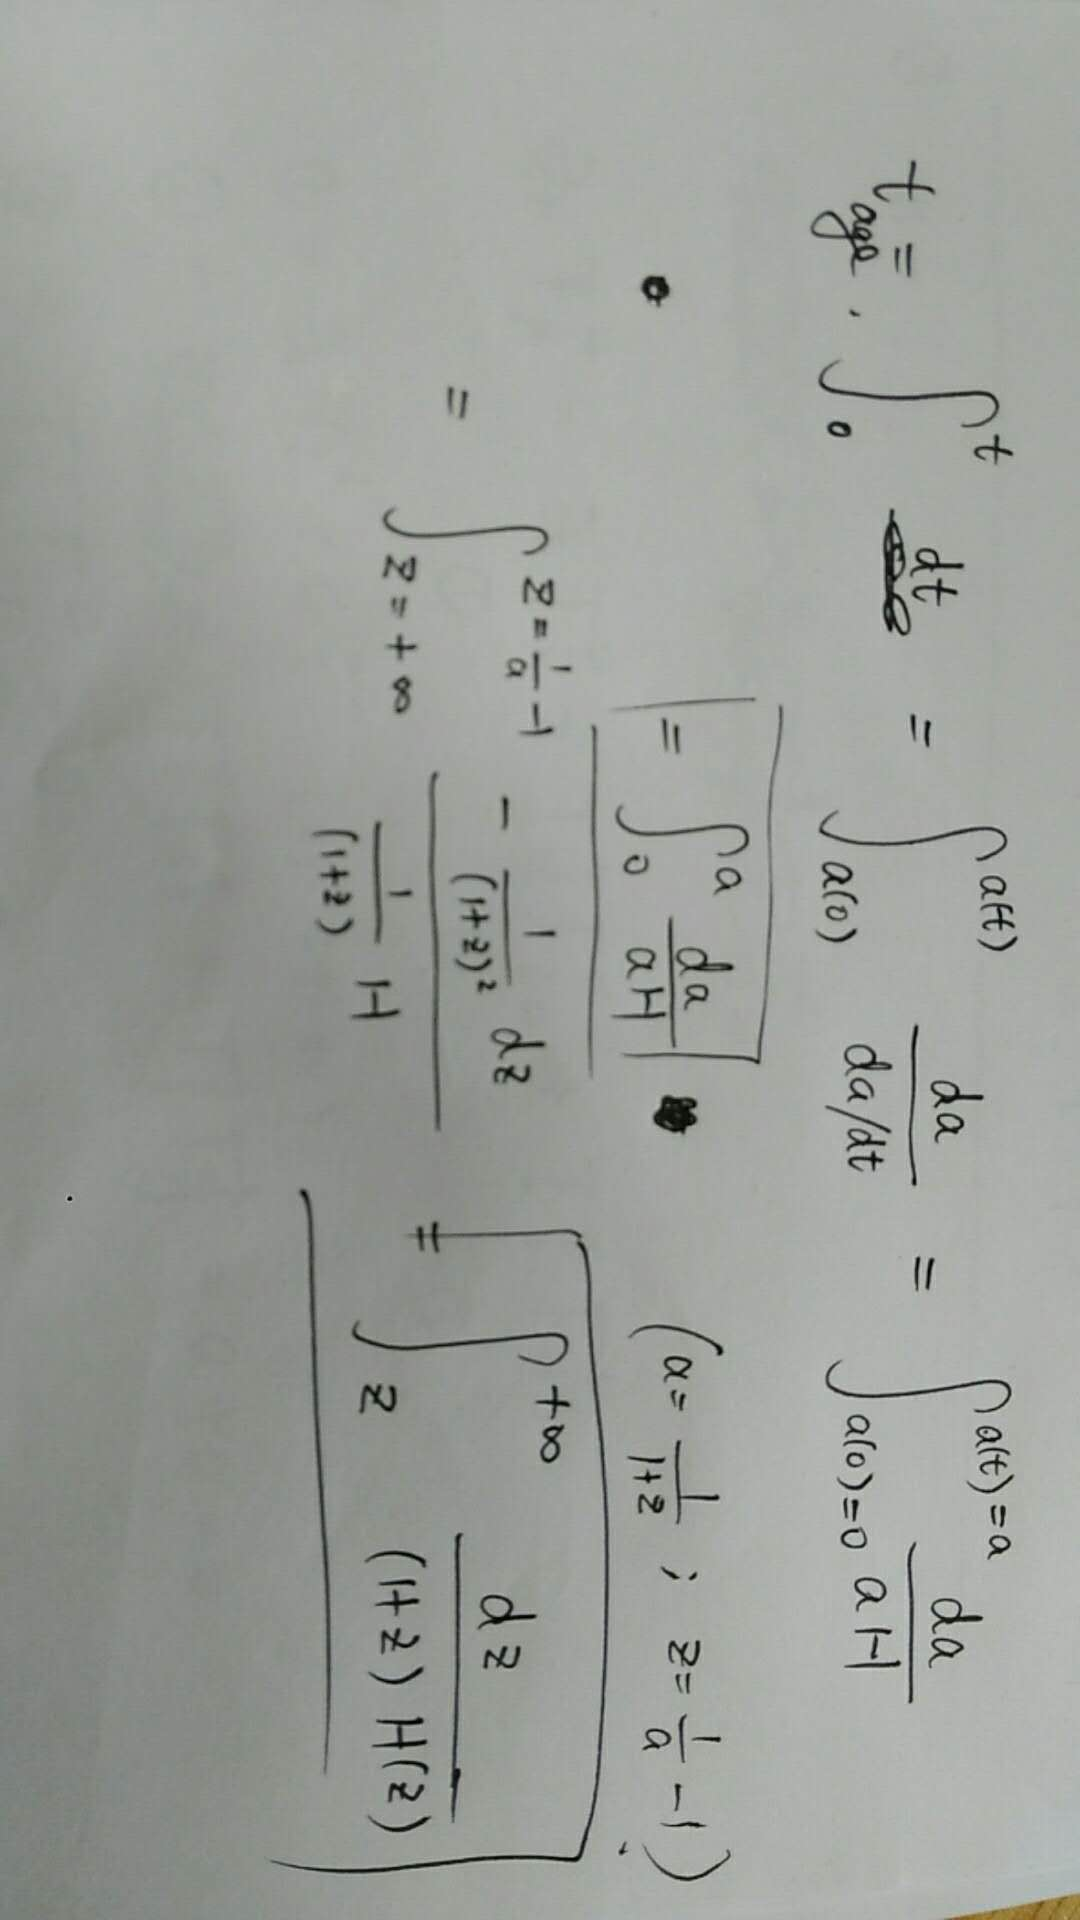 t_age = ∫_0^t dt = ∫_{a(0)}^{a(t)} da / (da/dt) = ∫_{a(0)=0}^{a(t)=a} da / (aH)
= ∫_0^a da / (aH) (a = 1/(1+z) ; z = 1/a - 1)
= ∫_{z=+∞}^{z=1/a-1} (- 1/(1+z)² dz) / (1/(1+z) H) = ∫_z^{+∞} dz / ((1+z) H(z))